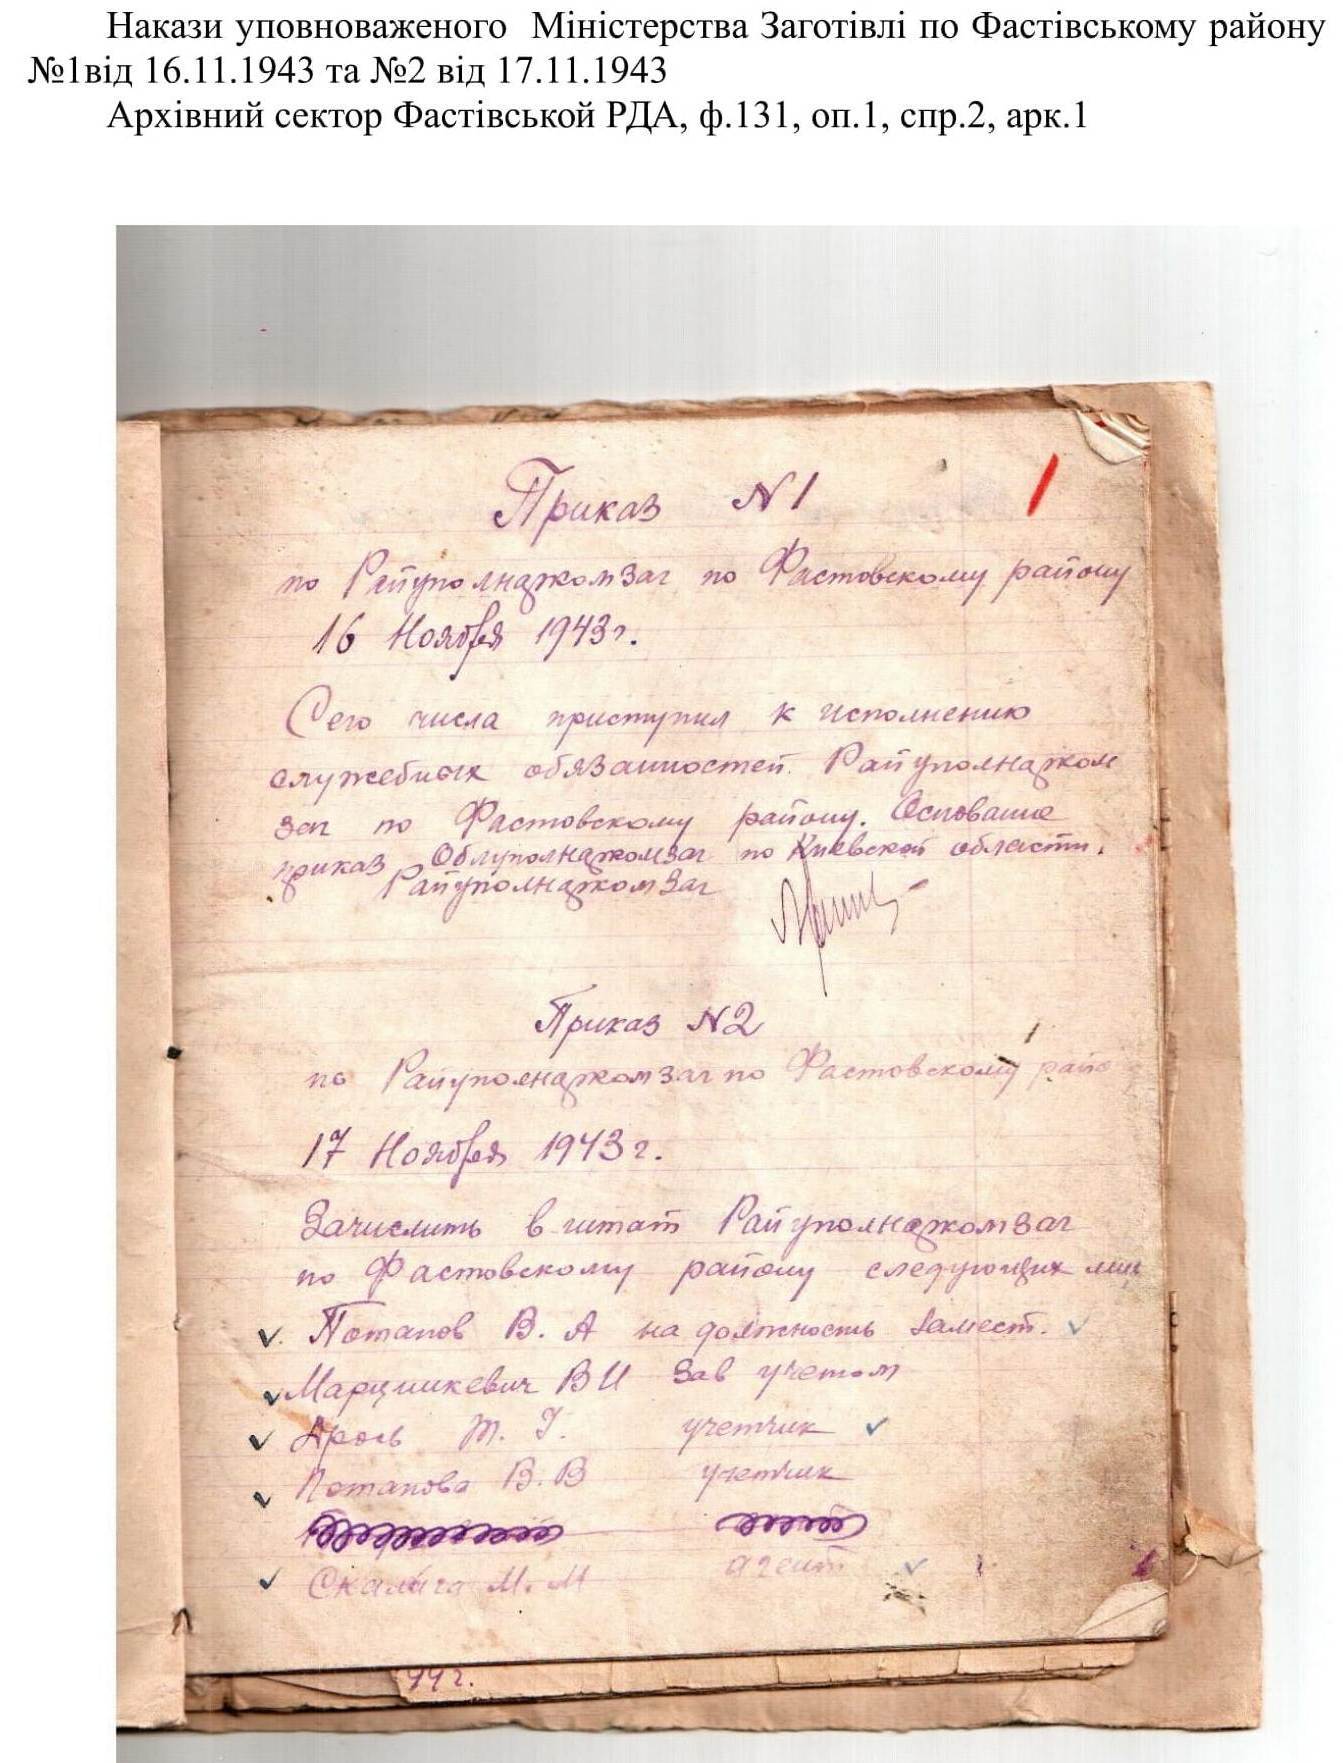 Накази уповноваженого Міністерства Заготівлі по Фастівському району
№1від 16.11.1943 та №2 від 17.11.1943
Архівний сектор Фастівської РДА, ф.131, оп.1, спр.2, арк.1
1
Приказ N 1
по Райуполнаркомзаг по Фастовскому району
16 Ноября 1943 г.
Сего числа приступил к исполнению
служебных обязанностей Райуполнарком
заг по Фастовскому району. Основание
приказ Облуполнаркомзаг по Киевской области.
Райуполнаркомзаг
Приказ N 2
по Райуполнаркомзаг по Фастовскому райо
17 Ноября 1943 г.
Зачислить в штат Райуполнаркомзаг
по Фастовскому району следующих лиц
Потапов В. А на должность Замест.
Марцинкевич В И Зав учетом
Дроль Т. Г. учетчик
Потапова В. В учетчик
Скалыга М. М агент
44 г.